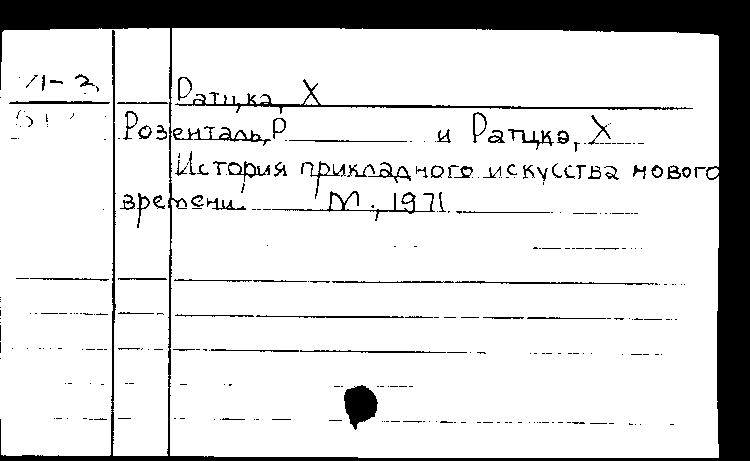 Ратцка, Х
Розенталь, Р и Ратцка, Х
История прикладного искусства нового
времени. М., 1971